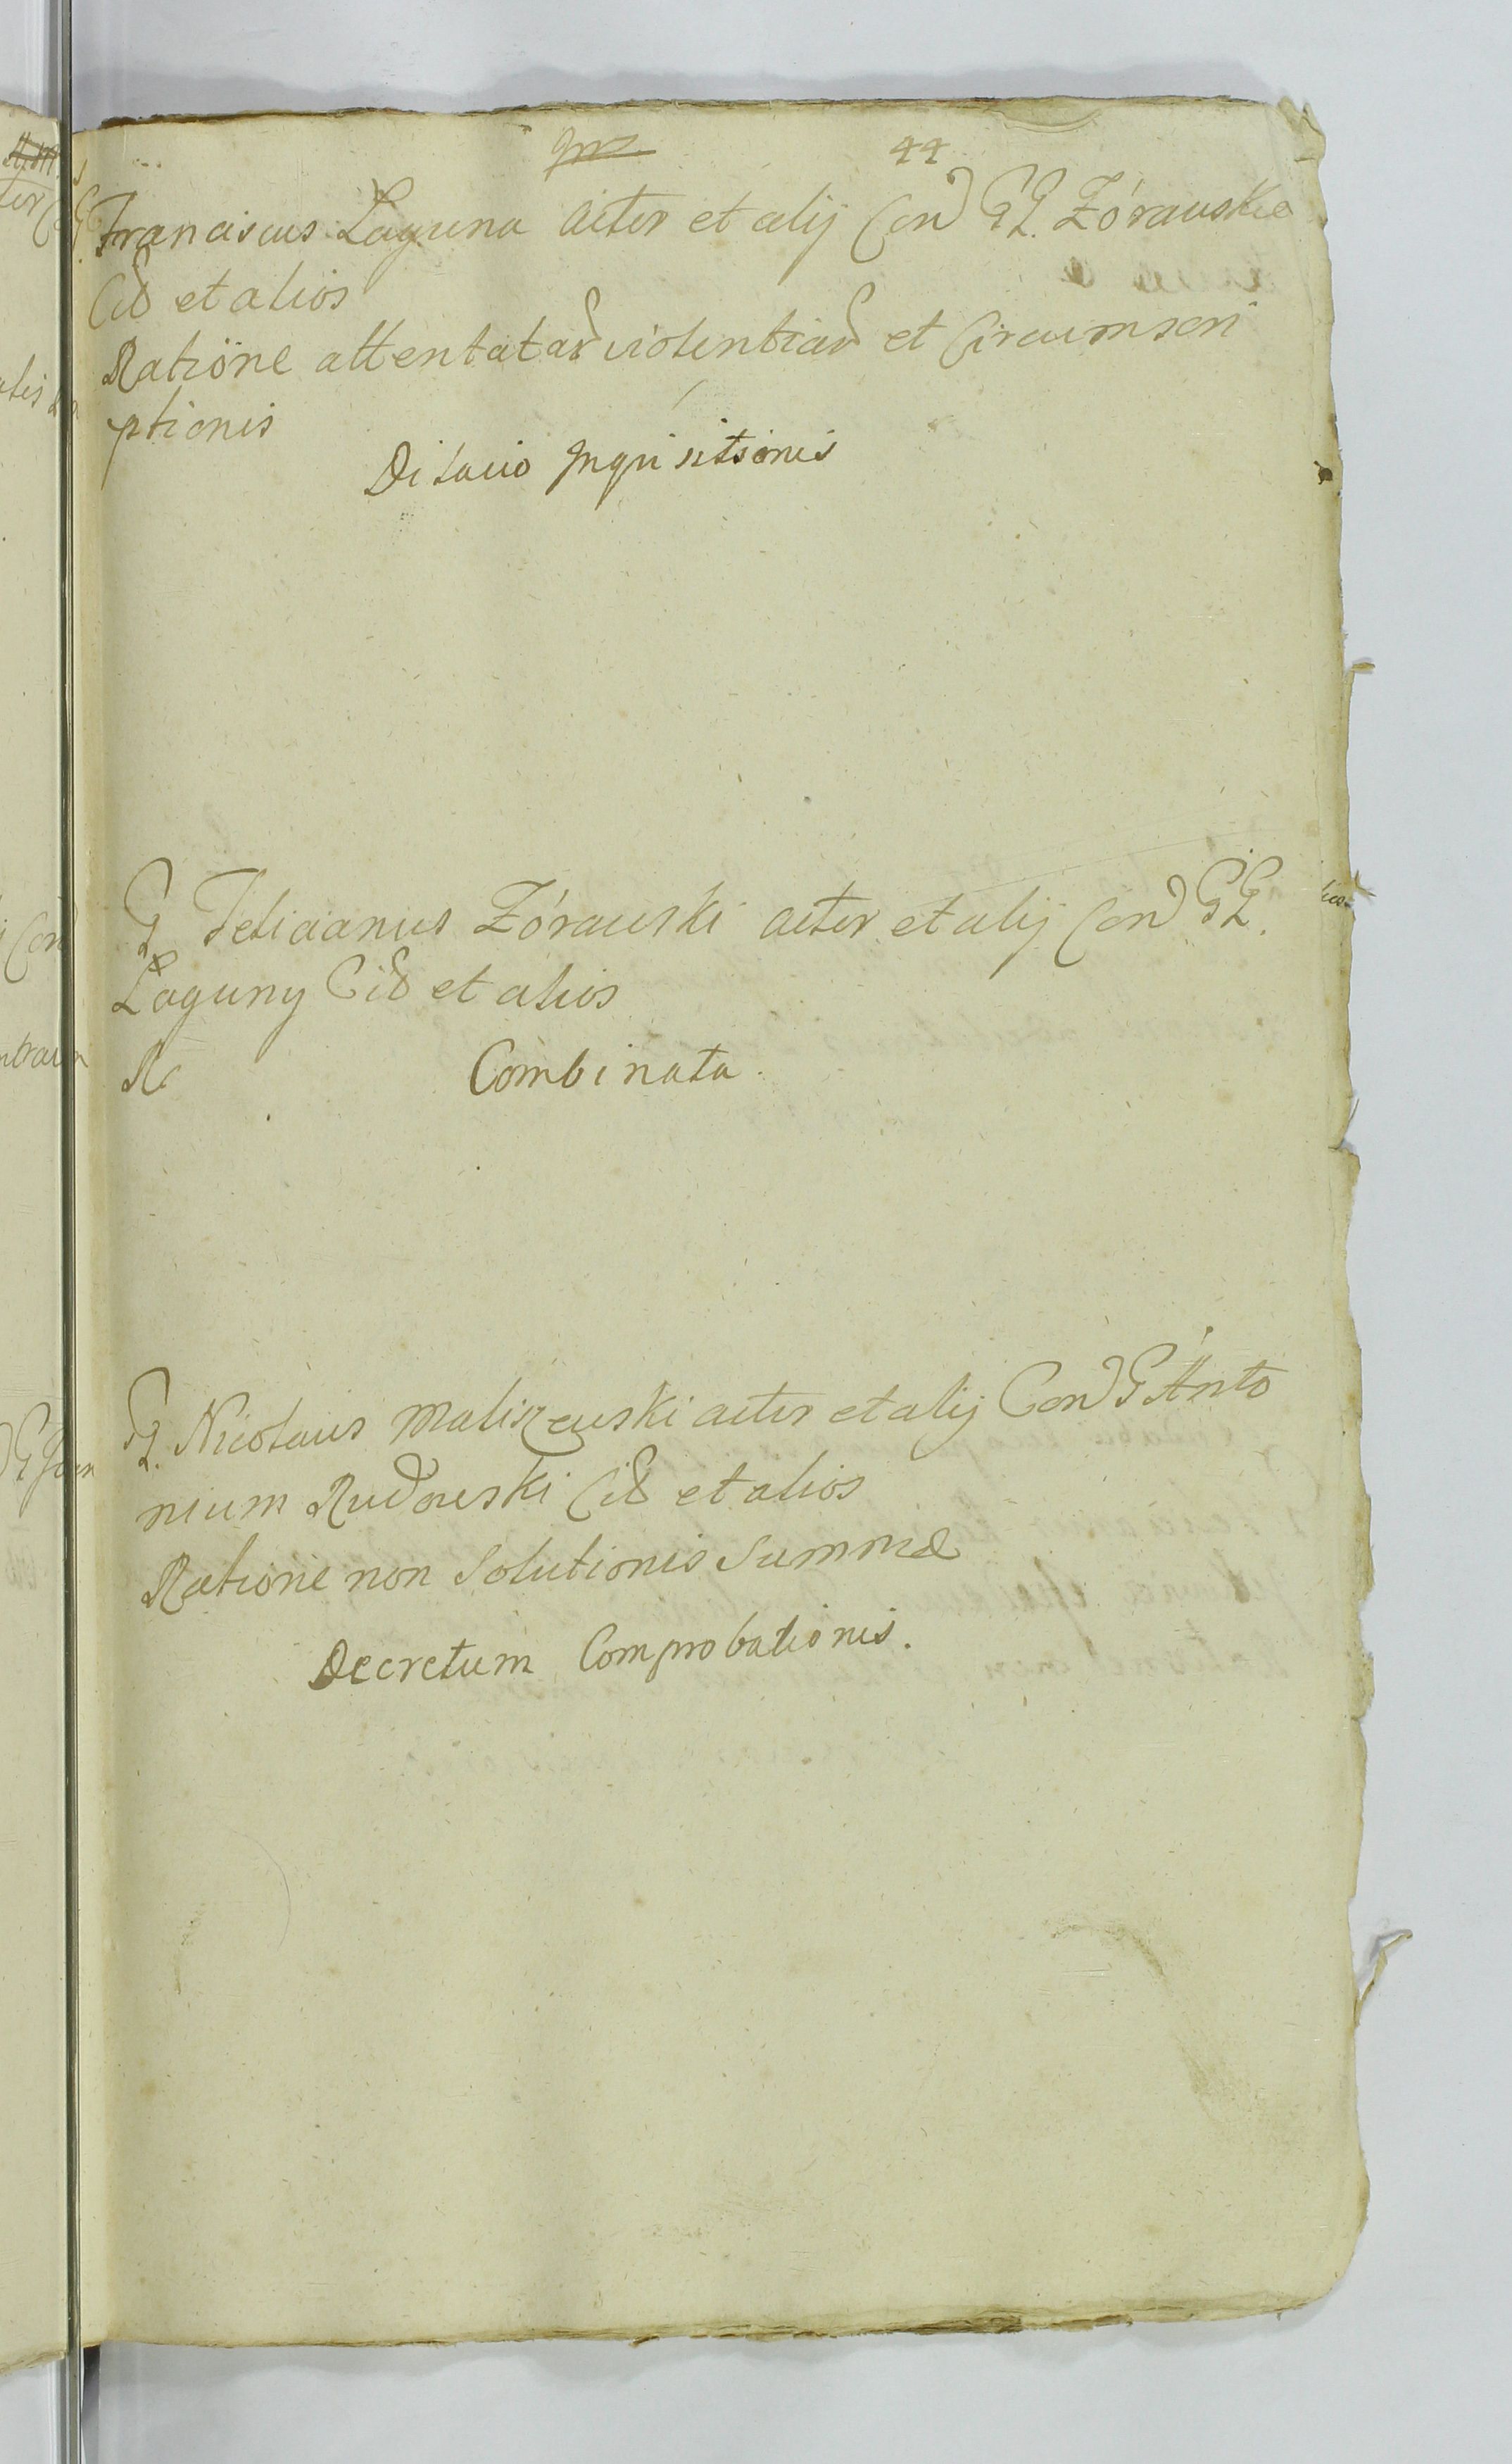 44
G. Franciscus Łaguna actor et alij Con GG. Zórauskie
Cit et alios
Ratione attentatar violentiar et Circumscri
ptionis
Dilatio Inquisitionis
G. Felicianus Zórauski actor et alij Con GG.
Łaguny Cit et alios
Re Combinata.
G. Nicolaus Maliszeuski actor et alij Con G Anto
nium Rudouski Cit et alios
Ratione non Solutionis Summæ
Decretum Comprobationis.